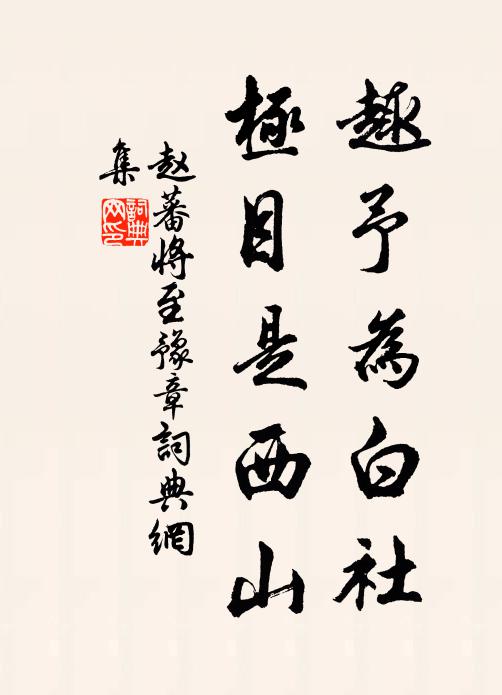 趣予為白社
極目是西山
赵蕃將至豫章詞典網
集
詞典
网印